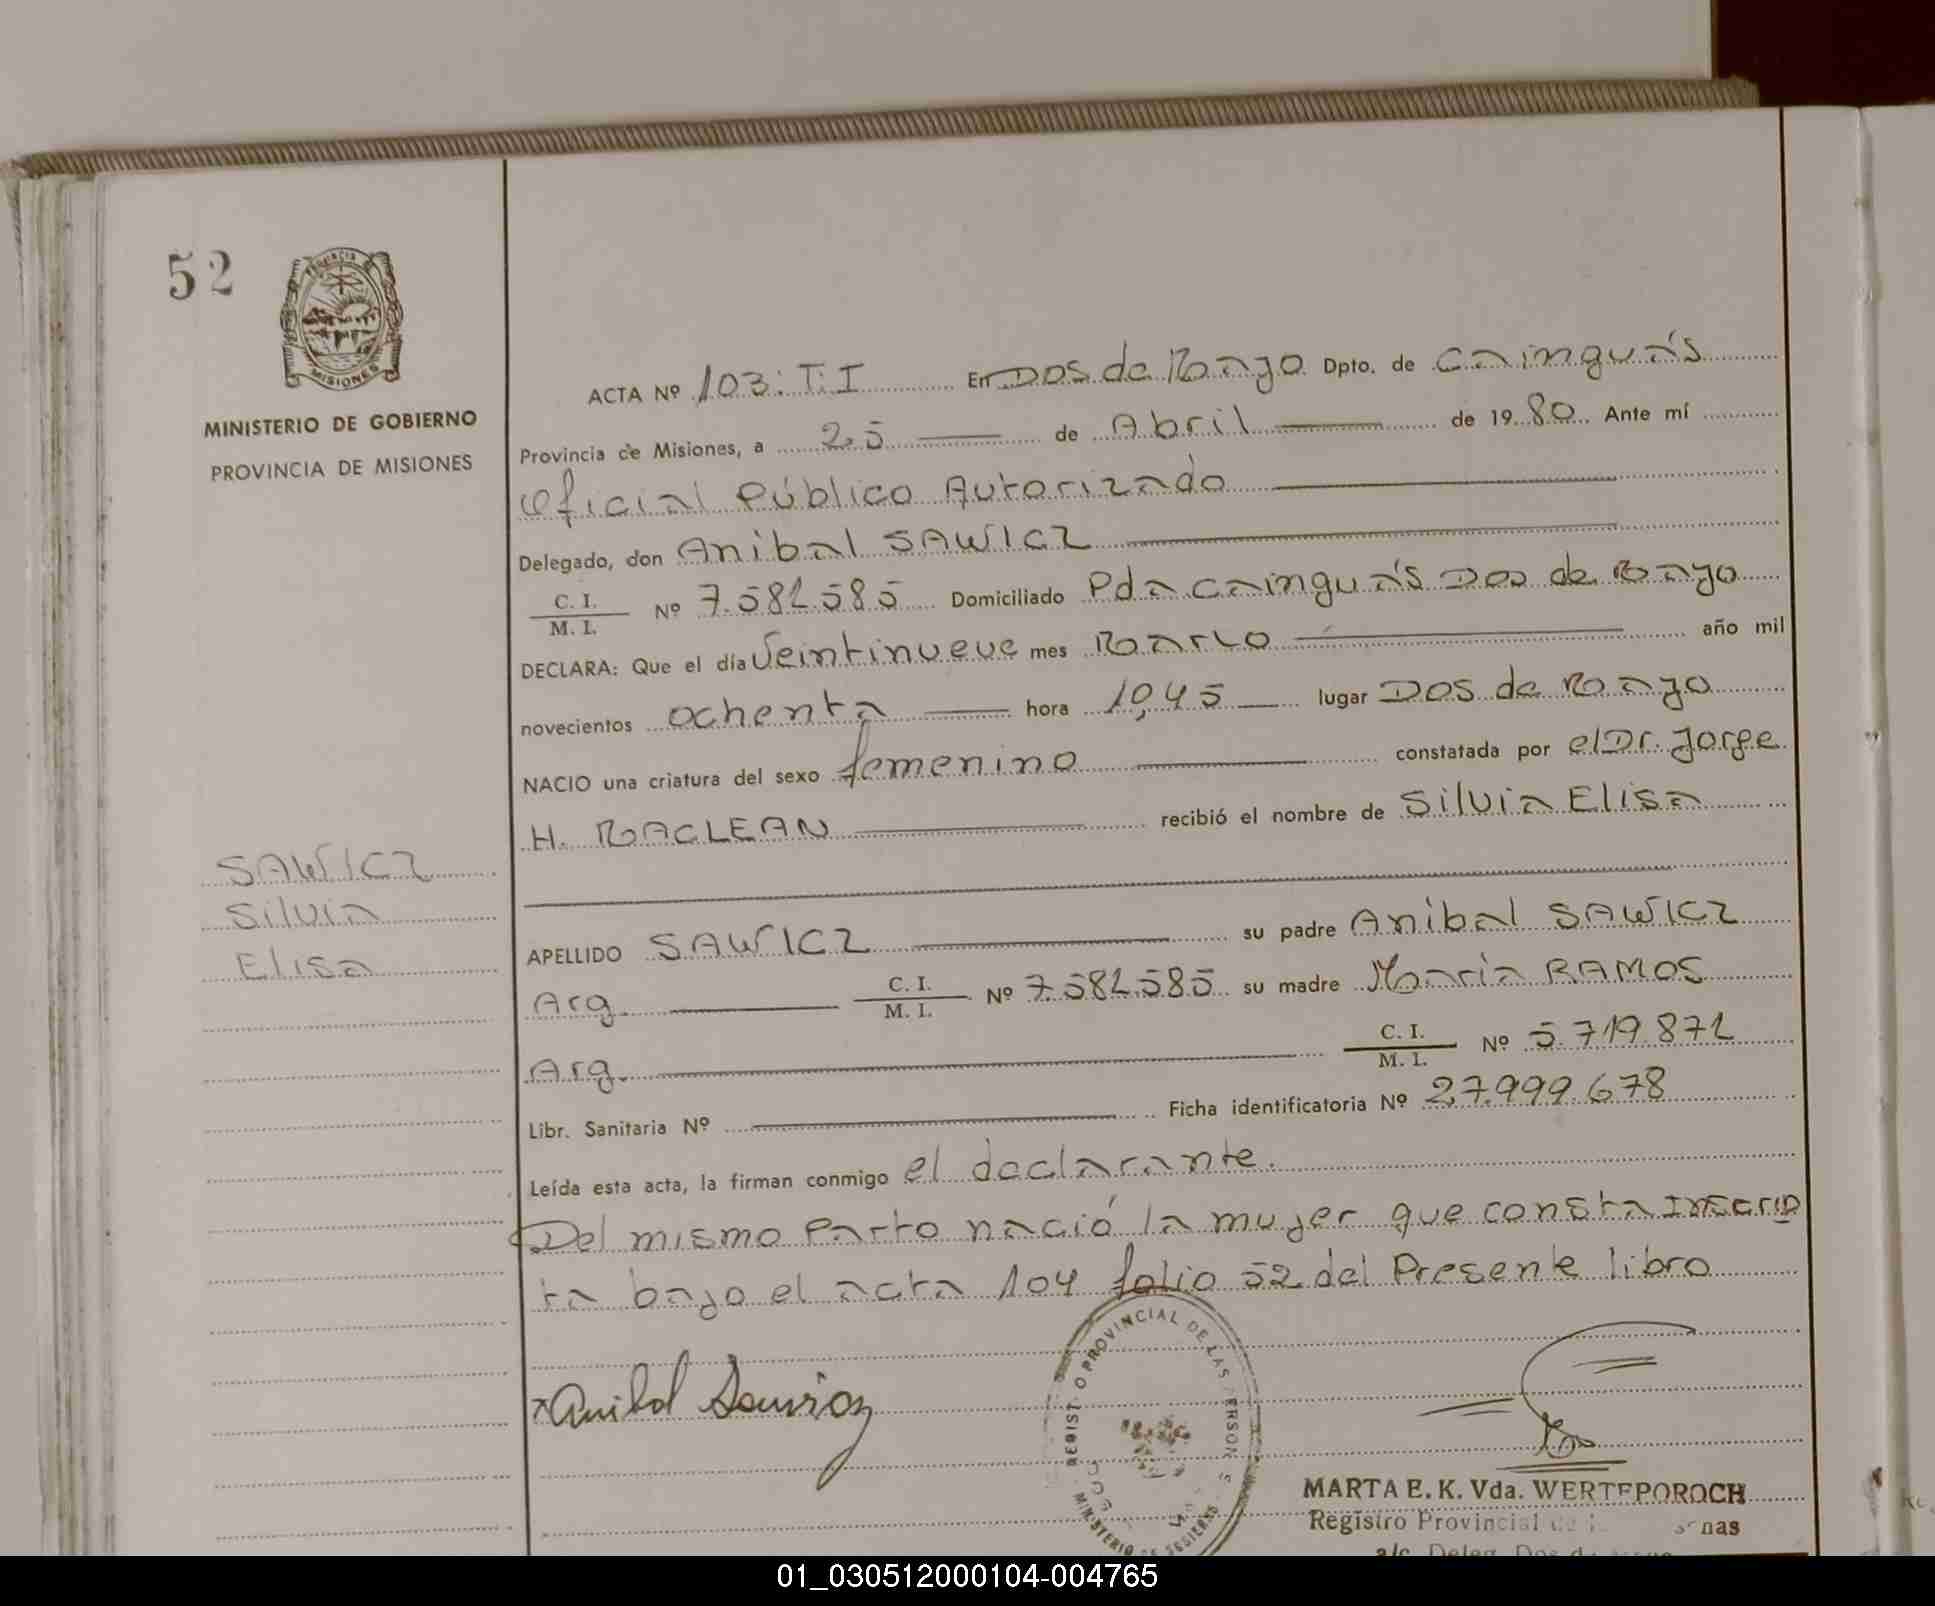 52
PROVINCIA
MISIONES
MINISTERIO DE GOBIERNO
PROVINCIA DE MISIONES
SAWICZ
Silvia
Elisa
ACTA Nº 103: T: I En Dos de Mayo Dpto. de Cainguás
Provincia de Misiones, a 25 de Abril de 1980 Ante mí
Oficial Público Autorizado
Delegado, don Anibal SAWICZ
C. I.
M. I. Nº 7.582.585 Domiciliado Pda Cainguás Dos de Mayo
DECLARA: Que el día Veintinueve mes Marzo año mil
novecientos ochenta hora 10,45 lugar Dos de Mayo
NACIO una criatura del sexo femenino constatada por el Dr. Jorge
H. MACLEAN recibió el nombre de Silvia Elisa
APELLIDO SAWICZ su padre Anibal SAWICZ
Arg. C. I.
M. I. Nº 7.582.585 su madre María RAMOS
Arg. C. I.
M. I. Nº 5.719.872
Libr. Sanitaria Nº Ficha identificatoria Nº 27.999.678
Leída esta acta, la firman conmigo el declarante.
Del mismo Parto nació la mujer que consta Inscrip
ta bajo el acta 104 folio 52 del Presente libro
Anibal Sawicz
PROVINCIAL DE LAS
MARTA E. K. Vda. WERTEPOROCH
Registro Provincial de
a/c. Deleg. Dos de
01_030512000104-004765